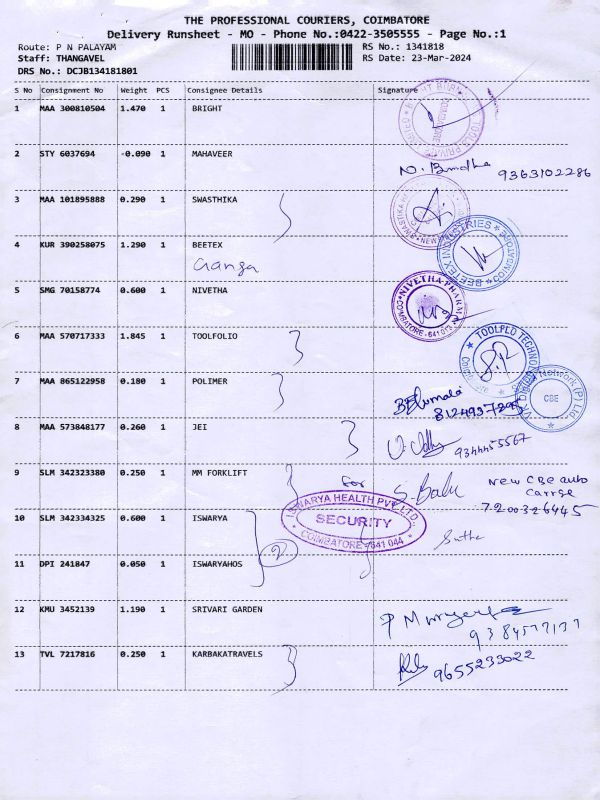 THE PROFESSIONAL COURIERS, COIMBATORE
Delivery Runsheet - MO - Phone No.:0422-3505555 - Page No.:1
Route: P N PALAYAM RS No.: 1341818
Staff: THANGAVEL RS Date: 23-Mar-2024
DRS No.: DCJB134181801
S No Consignment No Weight PCS Consignee Details Signature
1 MAA 300810504 1.470 1 BRIGHT
2 STY 6037694 -0.090 1 MAHAVEER
9363102286
3 MAA 101895888 0.290 1 SWASTHIKA
4 KUR 390258075 1.290 1 BEETEX
Ganga
BEETEX INDUSTRIES
5 SMG 70158774 0.600 1 NIVETHA
NIVETHA PHARMA
COIMBATORE-641 012
6 MAA 570717333 1.845 1 TOOLFOLIO
TOOLFLO TECHNOLOGIES
S.R
7 MAA 865122958 0.180 1 POLIMER
Network (P) Ltd
CBE
8 MAA 573848177 0.260 1 JEI
9344455567
9 SLM 342323380 0.250 1 MM FORKLIFT
for S. Balu New CBE auto
7200326445
10 SLM 342334325 0.600 1 ISWARYA
ISWARYA HEALTH PVT. LTD.
SECURITY
COIMBATORE-641 044
2
11 DPI 241847 0.050 1 ISWARYAHOS
12 KMU 3452139 1.190 1 SRIVARI GARDEN
13 TVL 7217816 0.250 1 KARBAKATRAVELS
9655233022